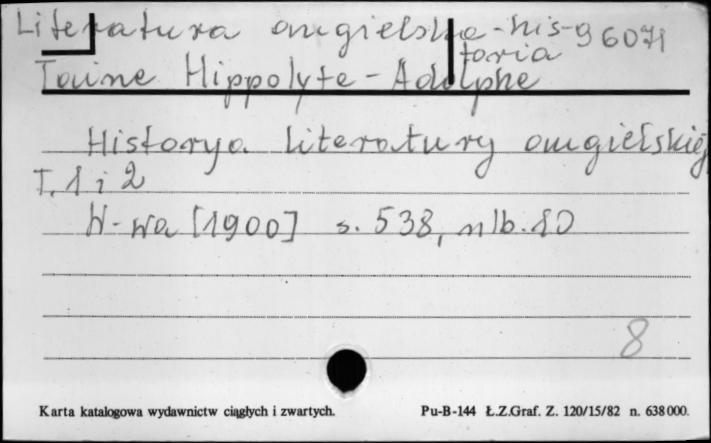 Literatura angielska-his-
toria
96071
Taine Hippolyte-Adolphe
Historya literatury angielskiéj
T. 1 i 2
W-wa [1900] s. 538, nlb. 10
8
Karta katalogowa wydawnictw ciągłych i zwartych. Pu-B-144 Ł.Z.Graf. Z. 120/15/82 n. 638000.